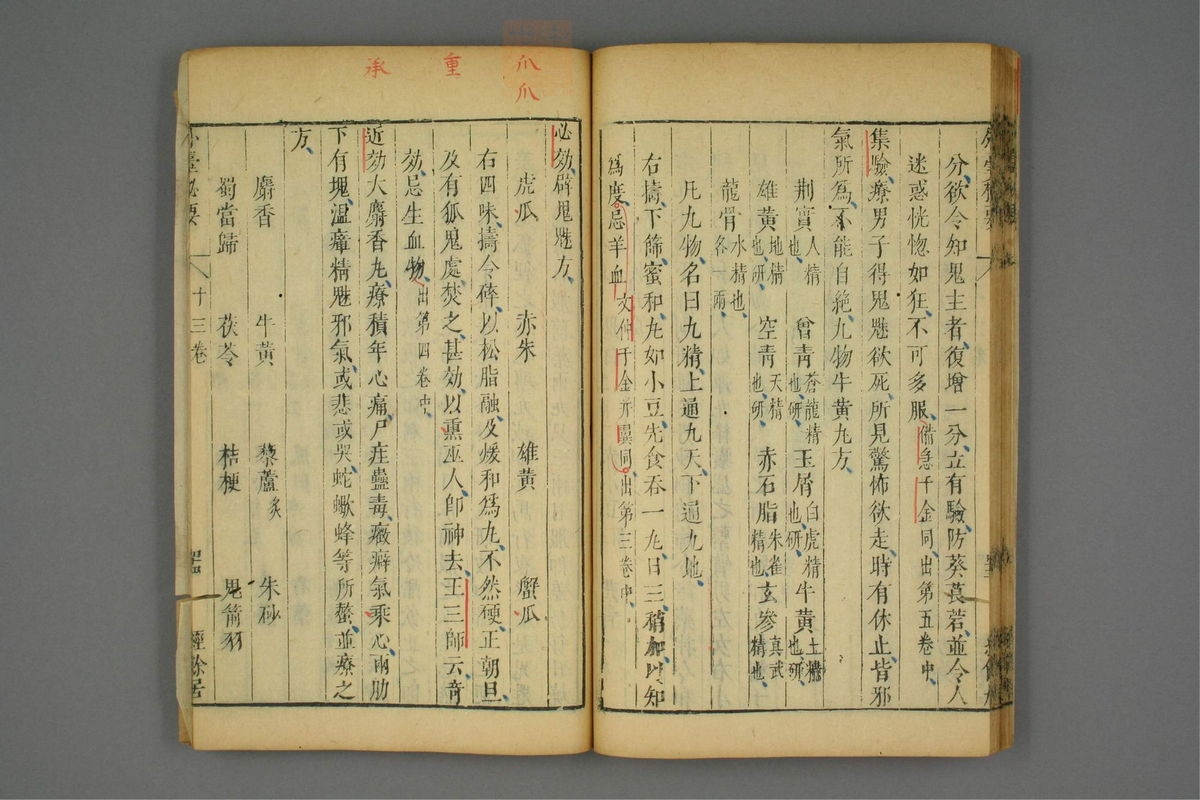 分欲令知鬼主者復增一分立有驗防葵莨若並令人
迷惑恍惚如狂不可多服備急千金同出第五卷中
集驗療男子得鬼魅欲死所見驚怖欲走時有休止皆邪
氣所爲不能自絶九物牛黃丸方
荆實人精也 曾青蒼龍精也研 玉屑白虎精也研 牛黃土精也研
雄黃地精也研 空青天精也研 赤石脂朱雀精也 玄參真武精也
龍骨水精也各一兩
凡九物名曰九精上通九天下通九地
右擣下篩蜜和丸如小豆先食吞一丸日三稍加以知
爲度忌羊血文仲千金并翼同出第三卷中
必効辟鬼魅方
虎爪 赤朱 雄黃 蟹爪
右四味擣令碎以松脂融及煖和爲丸不然硬正朝旦
及有狐鬼處焚之甚効以熏巫人卽神去王三師云奇
効忌生血物出第四卷中
近効大麝香丸療積年心痛尸疰蠱毒癥癖氣乘心兩肋
下有塊溫瘧精魅邪氣或悲或哭蛇蠍蜂等所螫並療之
方
麝香 牛黃 藜蘆炙 朱砂
蜀當歸 茯苓 桔梗 鬼箭羽
十三卷
經餘居
重
承
爪
爪